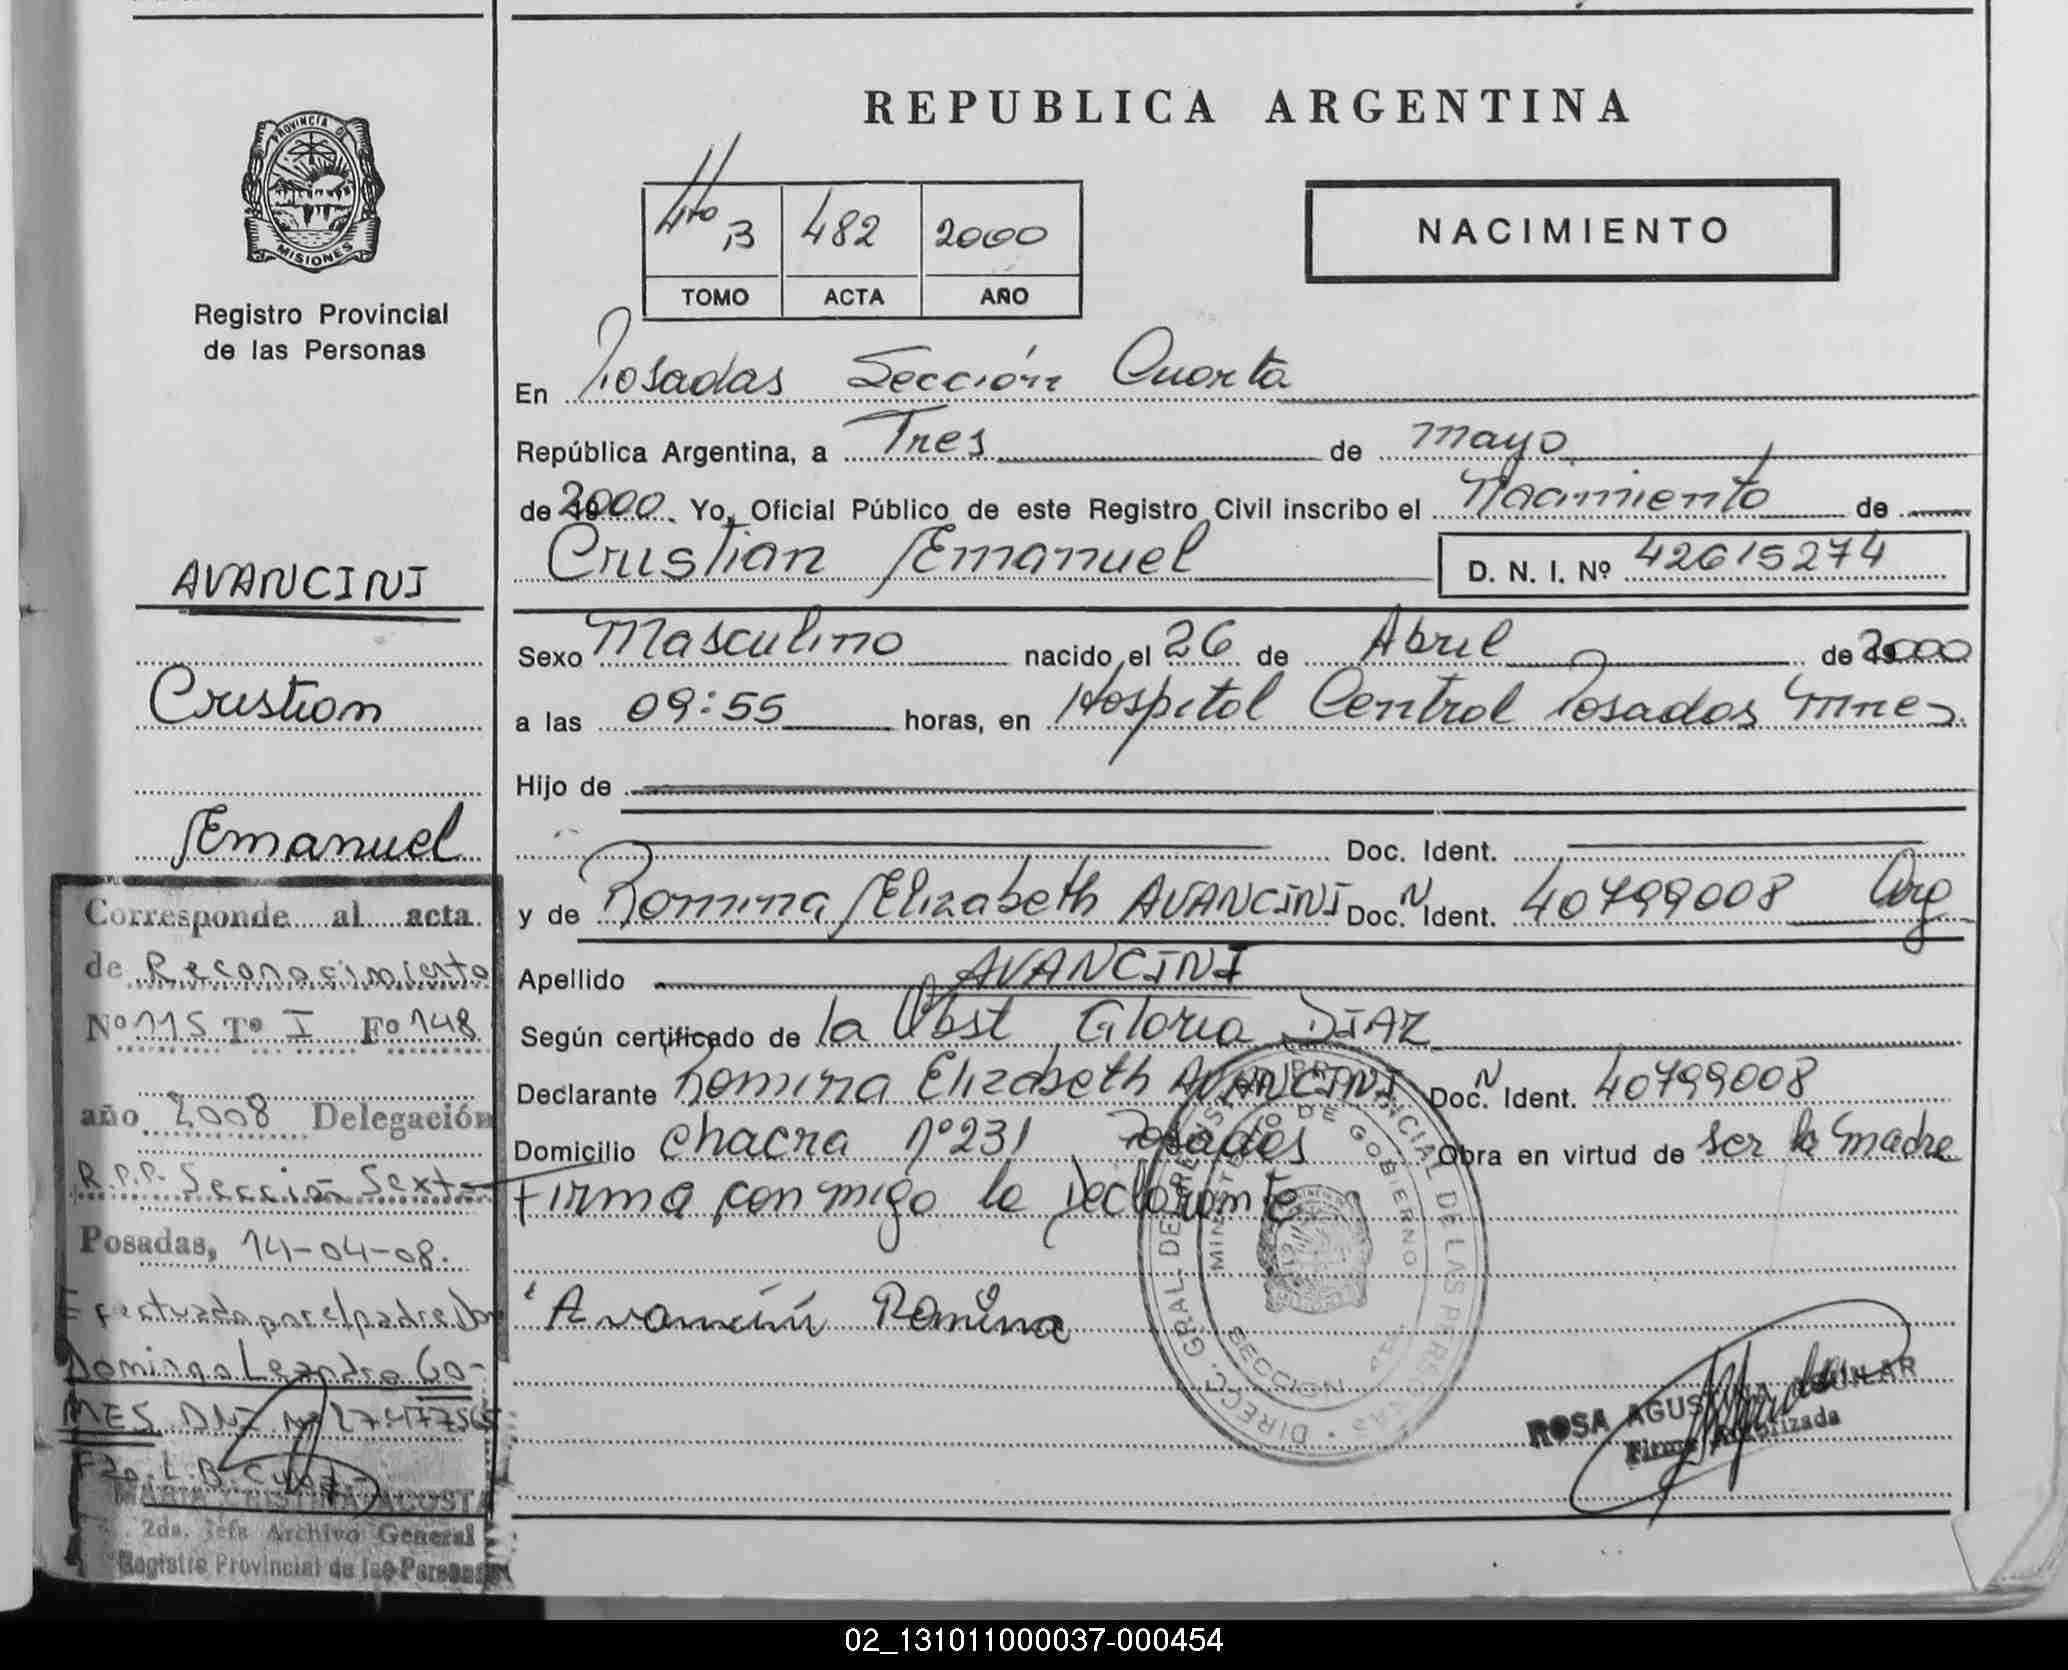 PROVINCIA DE
MISIONES
Registro Provincial
de las Personas
AVANCINI
Cristian
Emanuel
Corresponde al acta
de Reconocimiento
Nº 115 Tº I Fº 148
año 2008 Delegación
R.P.P. Sección Sexta
Posadas, 14-04-08.
Efectuada por el padre Don
Domingo Leandro GO-
MES DNI Nº 27477565
Fdo. L.B.
MARIA CRISTINA ACOSTA
2da. Jefa Archivo General
Registro Provincial de las Personas
REPUBLICA ARGENTINA
4to B 482 2000
TOMO ACTA AÑO
NACIMIENTO
En Posadas Sección Cuarta
República Argentina, a Tres de mayo
de 2000. Yo, Oficial Público de este Registro Civil inscribo el Nacimiento de
Cristian Emanuel D. N. I. Nº 42615274
Sexo Masculino nacido el 26 de Abril de 2000
a las 09:55 horas, en Hospital Central Posadas Mnes.
Hijo de
Doc. Ident.
y de Romina Elizabeth AVANCINI Doc. N Ident. 40799008 Arg
Apellido AVANCINI
Según certificado de la Obst Gloria DIAZ
Declarante Romina Elizabeth AVANCINI Doc. N Ident. 40799008
Domicilio chacra Nº 231 Posadas Obra en virtud de ser la madre
Firma conmigo la Declarante
Avancini Romina
DIRECC. GRAL. DEL REGISTRO PROVINCIAL DE LAS PERSONAS
MINISTERIO DE GOBIERNO
SECCION 4ta.
ROSA AGUSTINA AGUILAR
Firma Autorizada
02_131011000037-000454